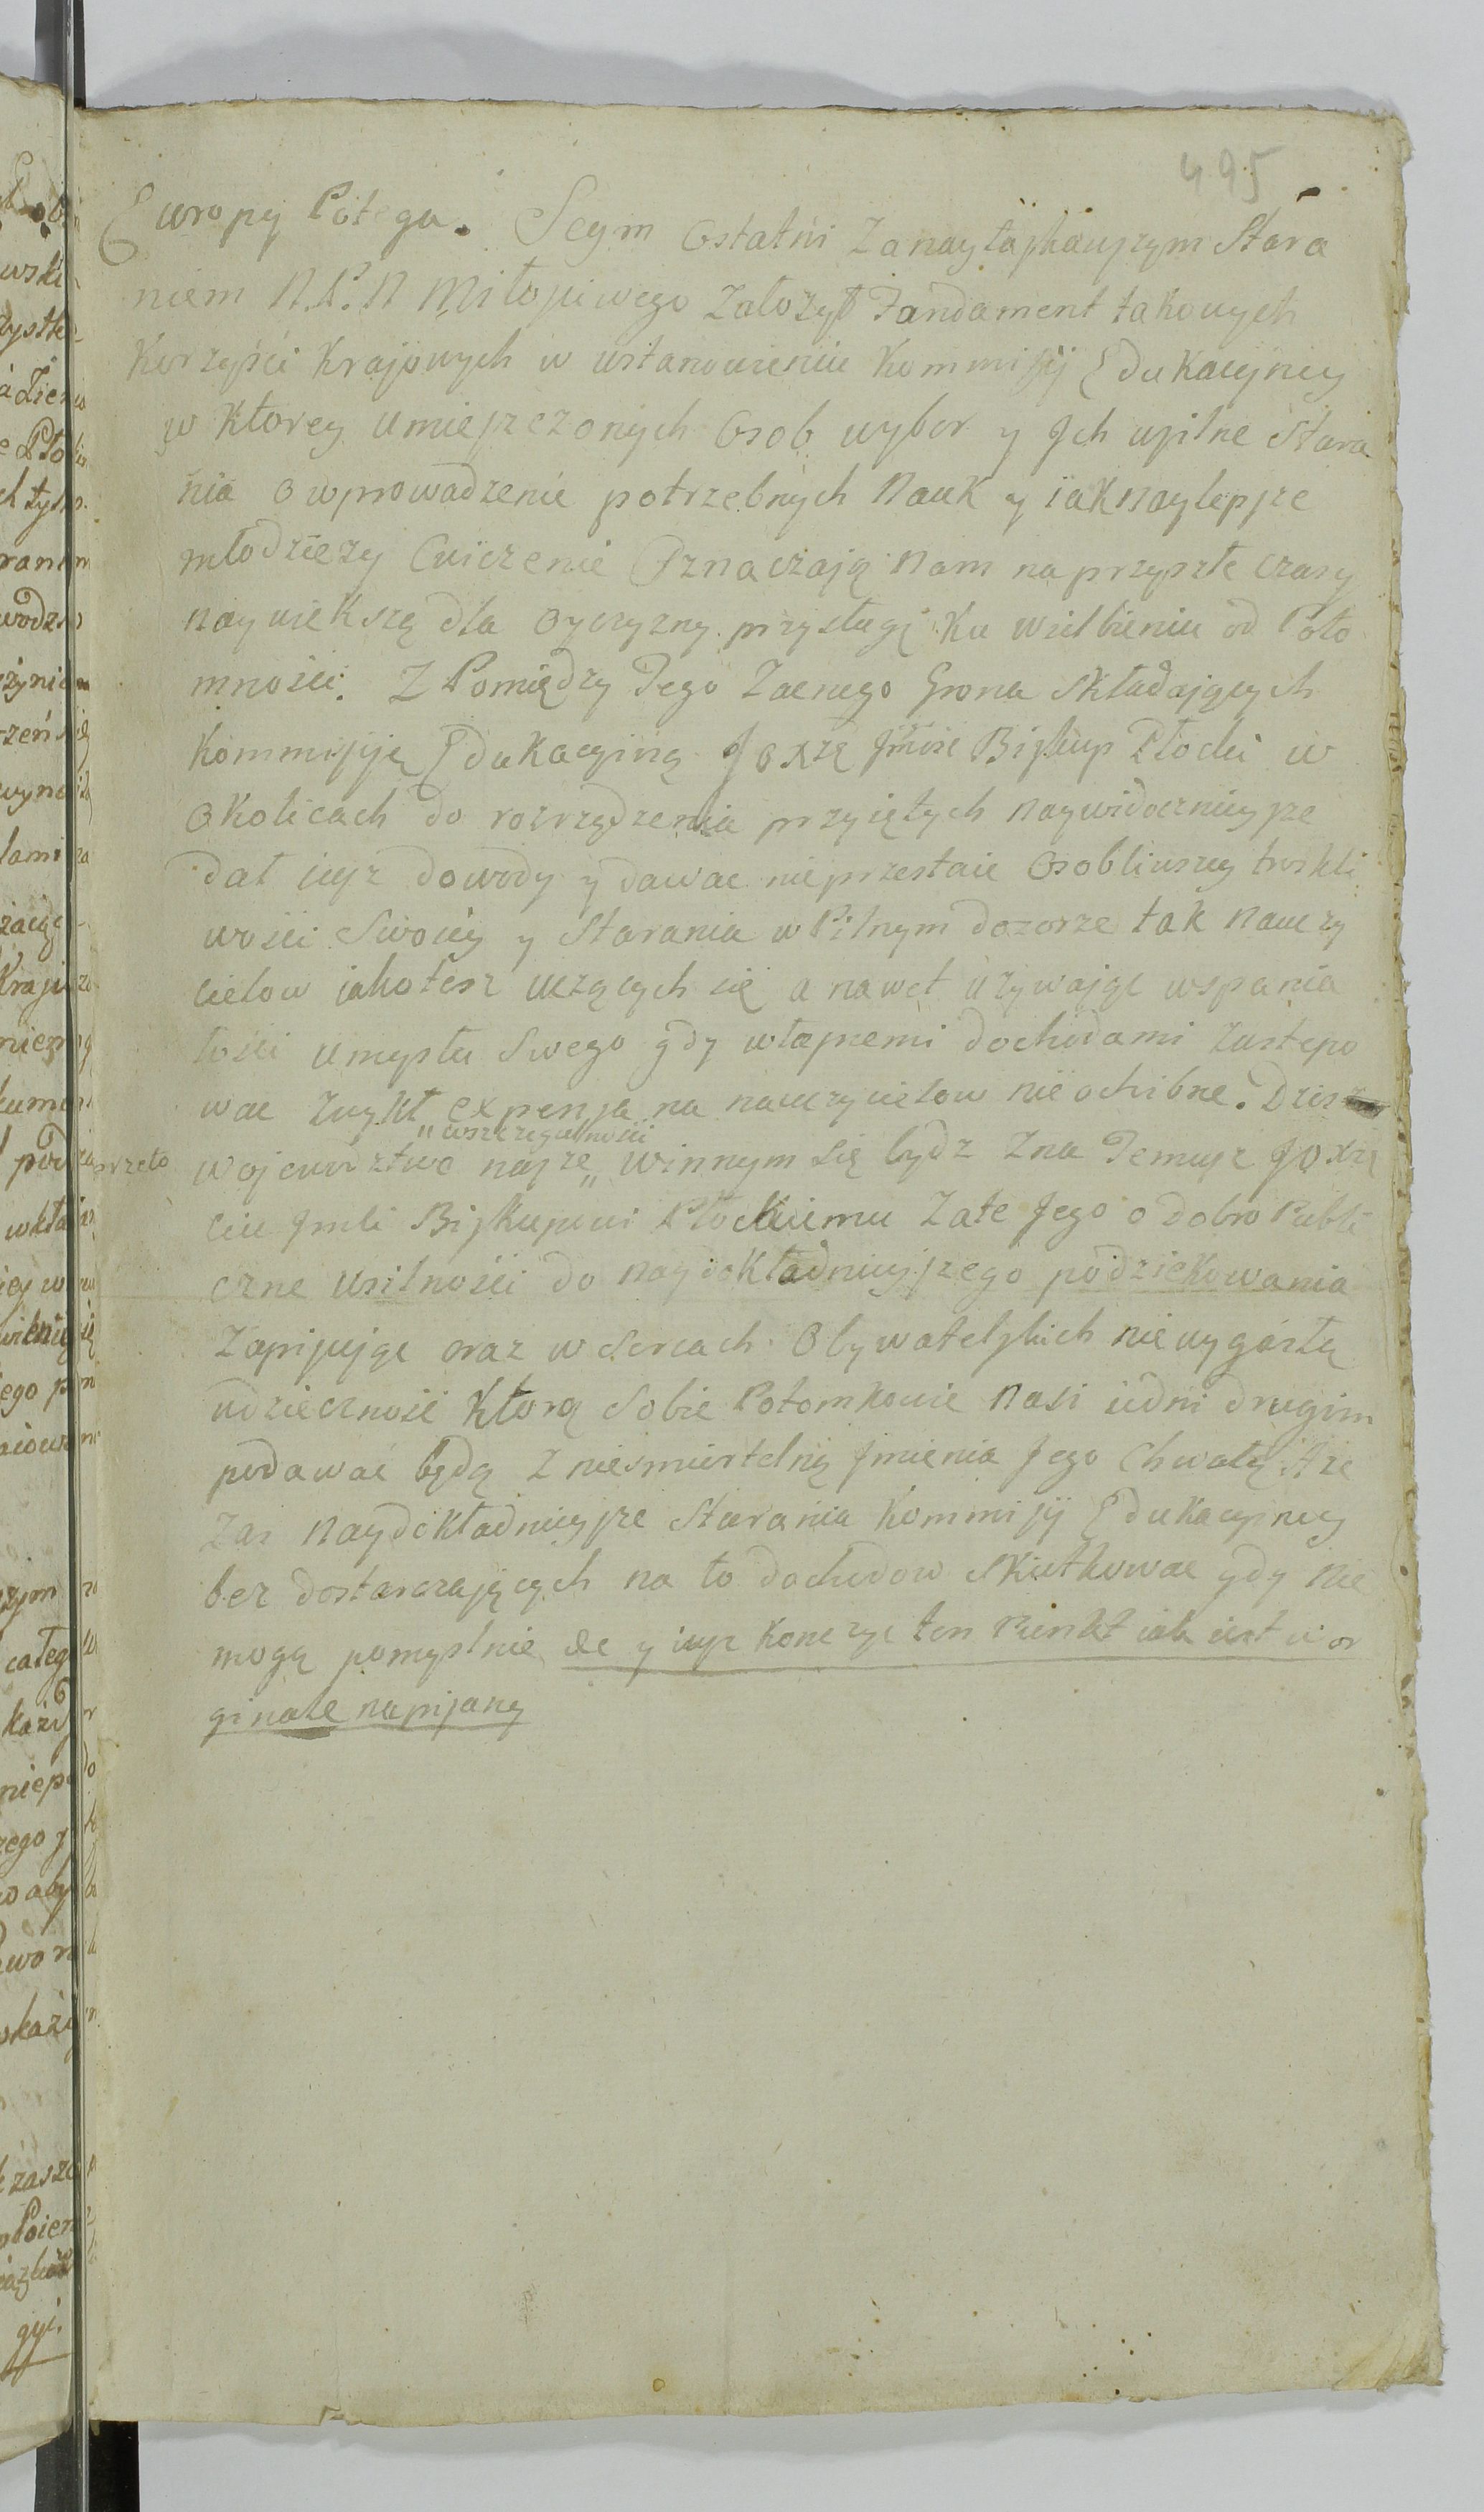 495
Europy Potega. Seym Ostatni Zanayłaskawszym Stara
niem N. P. N Miłosciwego Załozył Fandament takowych
Korzysci Krajowych w ustanowieniu Kommissyi Edukacyney
w Ktorey Umieszczonych Osob wybor y Ich upilne Stara
nia o wprowadzenie potrzebnych Nauk y iak naylepsze
młodziezy Cwiczenie Oznaczaią Nam na przyszłe czasy
naywiekszą dla Oyczyzny przysługę Ku wielbieniu od Poto
mnosci. Z Pomiędzy Tego Zacnego Grona Składaiących
Kommissyię Edukacyiną JO Xżę Jmść Biskup Płocki w
Okolicach do rozrządzenia przyiętych naywidocznieysze
dał iusz dowody y dawac nieprzestaie Osobliwszey troskli
wosci Swoiey y Starania w Pilnym dozorze tak Nauczy
cielow iako tesz uczących się a nawet uzywaiąc wspania
łosci umysłu Swego gdy własnemi dochodami Zastepo
wac Zwykł expensa na nauczycielow nie ochibne. Dzis
przeto Wojewodztwo nasze „ winnym się bydz Zna Temusz JO Xżę
„ wszczegulnosci
ciu Jmści Biskupowi Płockiemu Zate Jego o dobro Publi
czne Usilnosci do naydokładnieyszego podziekowania
Zapisuiąc oraz w Sercach Obywatelskich niewygasłą
wdziecznosć Ktorą Sobie Potomkowie Nasi iedni drugim
podawać będą Z niesmiertelną Jmienia Jego Chwałą. A ze
Zas Naydokładnieysze Starania Kommissyi Edukacyiney
bez dostarczaiących na to dochodow Skutkowac gdy nie
mogą pomyslnie &c y iusz konczyc ten Punkt iak iest w or
ginale napisany